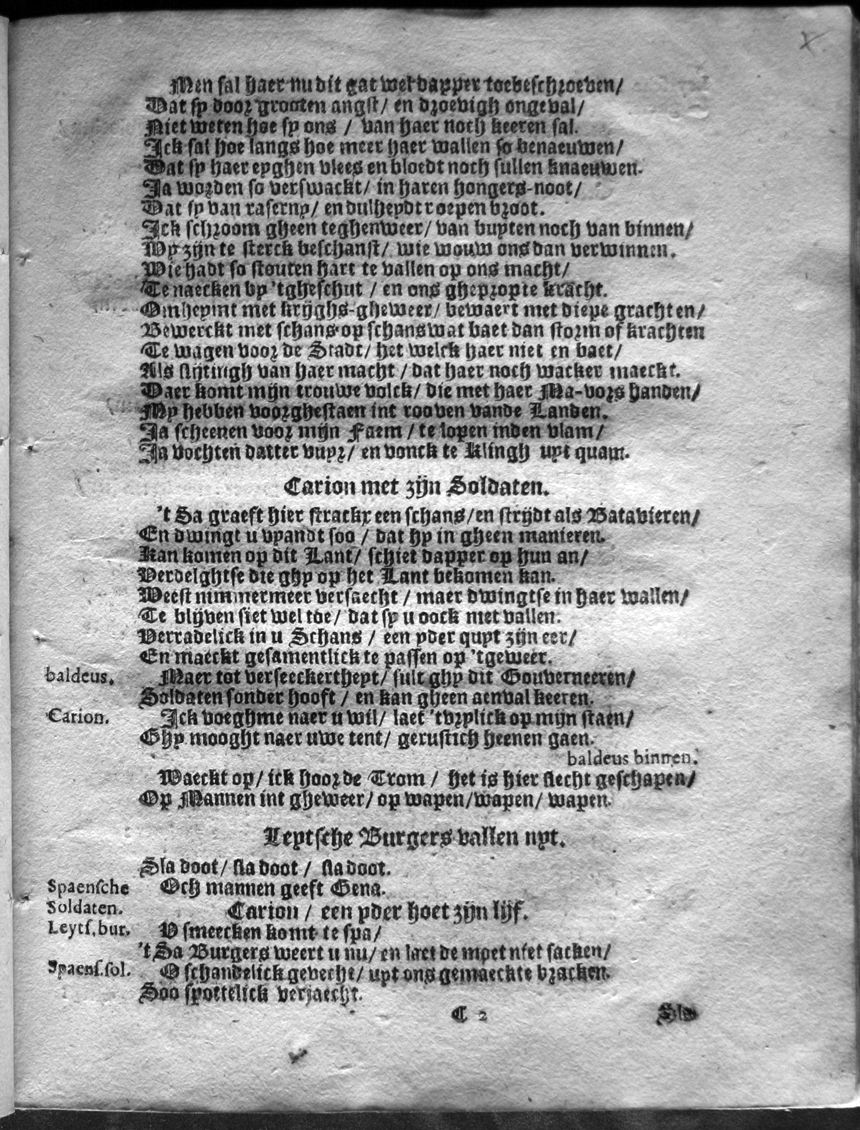 Men sal haer nu dit gat wel dapper toebeschroeven/
Dat sy door grooten angst/ en droevigh ongeval/
Niet weten hoe sy ons / van haer noch keeren sal.
Ick sal hoe langs hoe meer haer wallen so benaeuwen/
Dat sy haer eyghen vlees en bloedt noch sullen knaeuwen.
Ja worden so verswackt/ in haren hongers-noot/
Dat sy van raserny/ en dulheydt roepen broot.
Ick schroom gheen teghenweer/ van buyten noch van binnen/
Wy zijn te sterck beschanst/ wie wouw ons dan verwinnen.
Wie hadt so stouten hart te vallen op ons macht/
Te naecken by 'tgheschut / en ons ghepropte kracht.
Omheynt met krijghs-gheweer/ bewaert met diepe grachten/
Bewerckt met schans op schans wat baet dan storm of krachten
Te wagen voor de Stadt/ het welck haer niet en baet/
Als slijtingh van haer macht / dat haer noch wacker maeckt.
Daer komt mijn trouwe volck/ die met haer Ma-vors handen/
My hebben voorghestaen int rooven vande Landen.
Ja scheenen voor mijn Faem / te lopen inden vlam/
Ja vochten datter vuyr/ en vonck te Klingh uyt quam.
Carion met zijn Soldaten.
't Sa graeft hier strackx een schans/en strijdt als Batavieren/
En dwingt u vyandt soo / dat hy in gheen manieren.
Kan komen op dit Lant/ schiet dapper op hun an/
Verdelghtse die ghy op het Lant bekomen kan.
Weest nimmermeer versaecht / maer dwingtse in haer wallen/
Te blijven siet wel toe/ dat sy u oock niet vallen.
Verradelick in u Schans / een yder quyt zijn eer/
En maeckt gesamentlick te passen op 'tgeweer.
baldeus. Maer tot verseeckertheyt/ sult ghy dit Gouverneeren/
Soldaten sonder hooft / en kan gheen aenval keeren.
Carion. Ick voeghme naer u wil/ laet 'tvrylick op mijn staen/
Ghy mooght naer uwe tent/ gerustich heenen gaen.
baldeus binnen.
Waeckt op/ ick hoor de Trom / het is hier slecht geschapen/
Op Mannen int gheweer/ op wapen/wapen/ wapen.
Leytsche Burgers vallen uyt.
Sla doot/ sla doot / sla doot.
Spaensche Soldaten. Och mannen geeft Gena.
Carion / een yder hoet zijn lijf.
Leytf. bur. U smeecken komt te spa/
't Sa Burgers weert u nu/ en laet de moet niet sacken/
Spaens.sol. O schandelick gevecht/ uyt ons gemaeckte bracken.
Soo spottelick verjaecht.
C 2 Sla